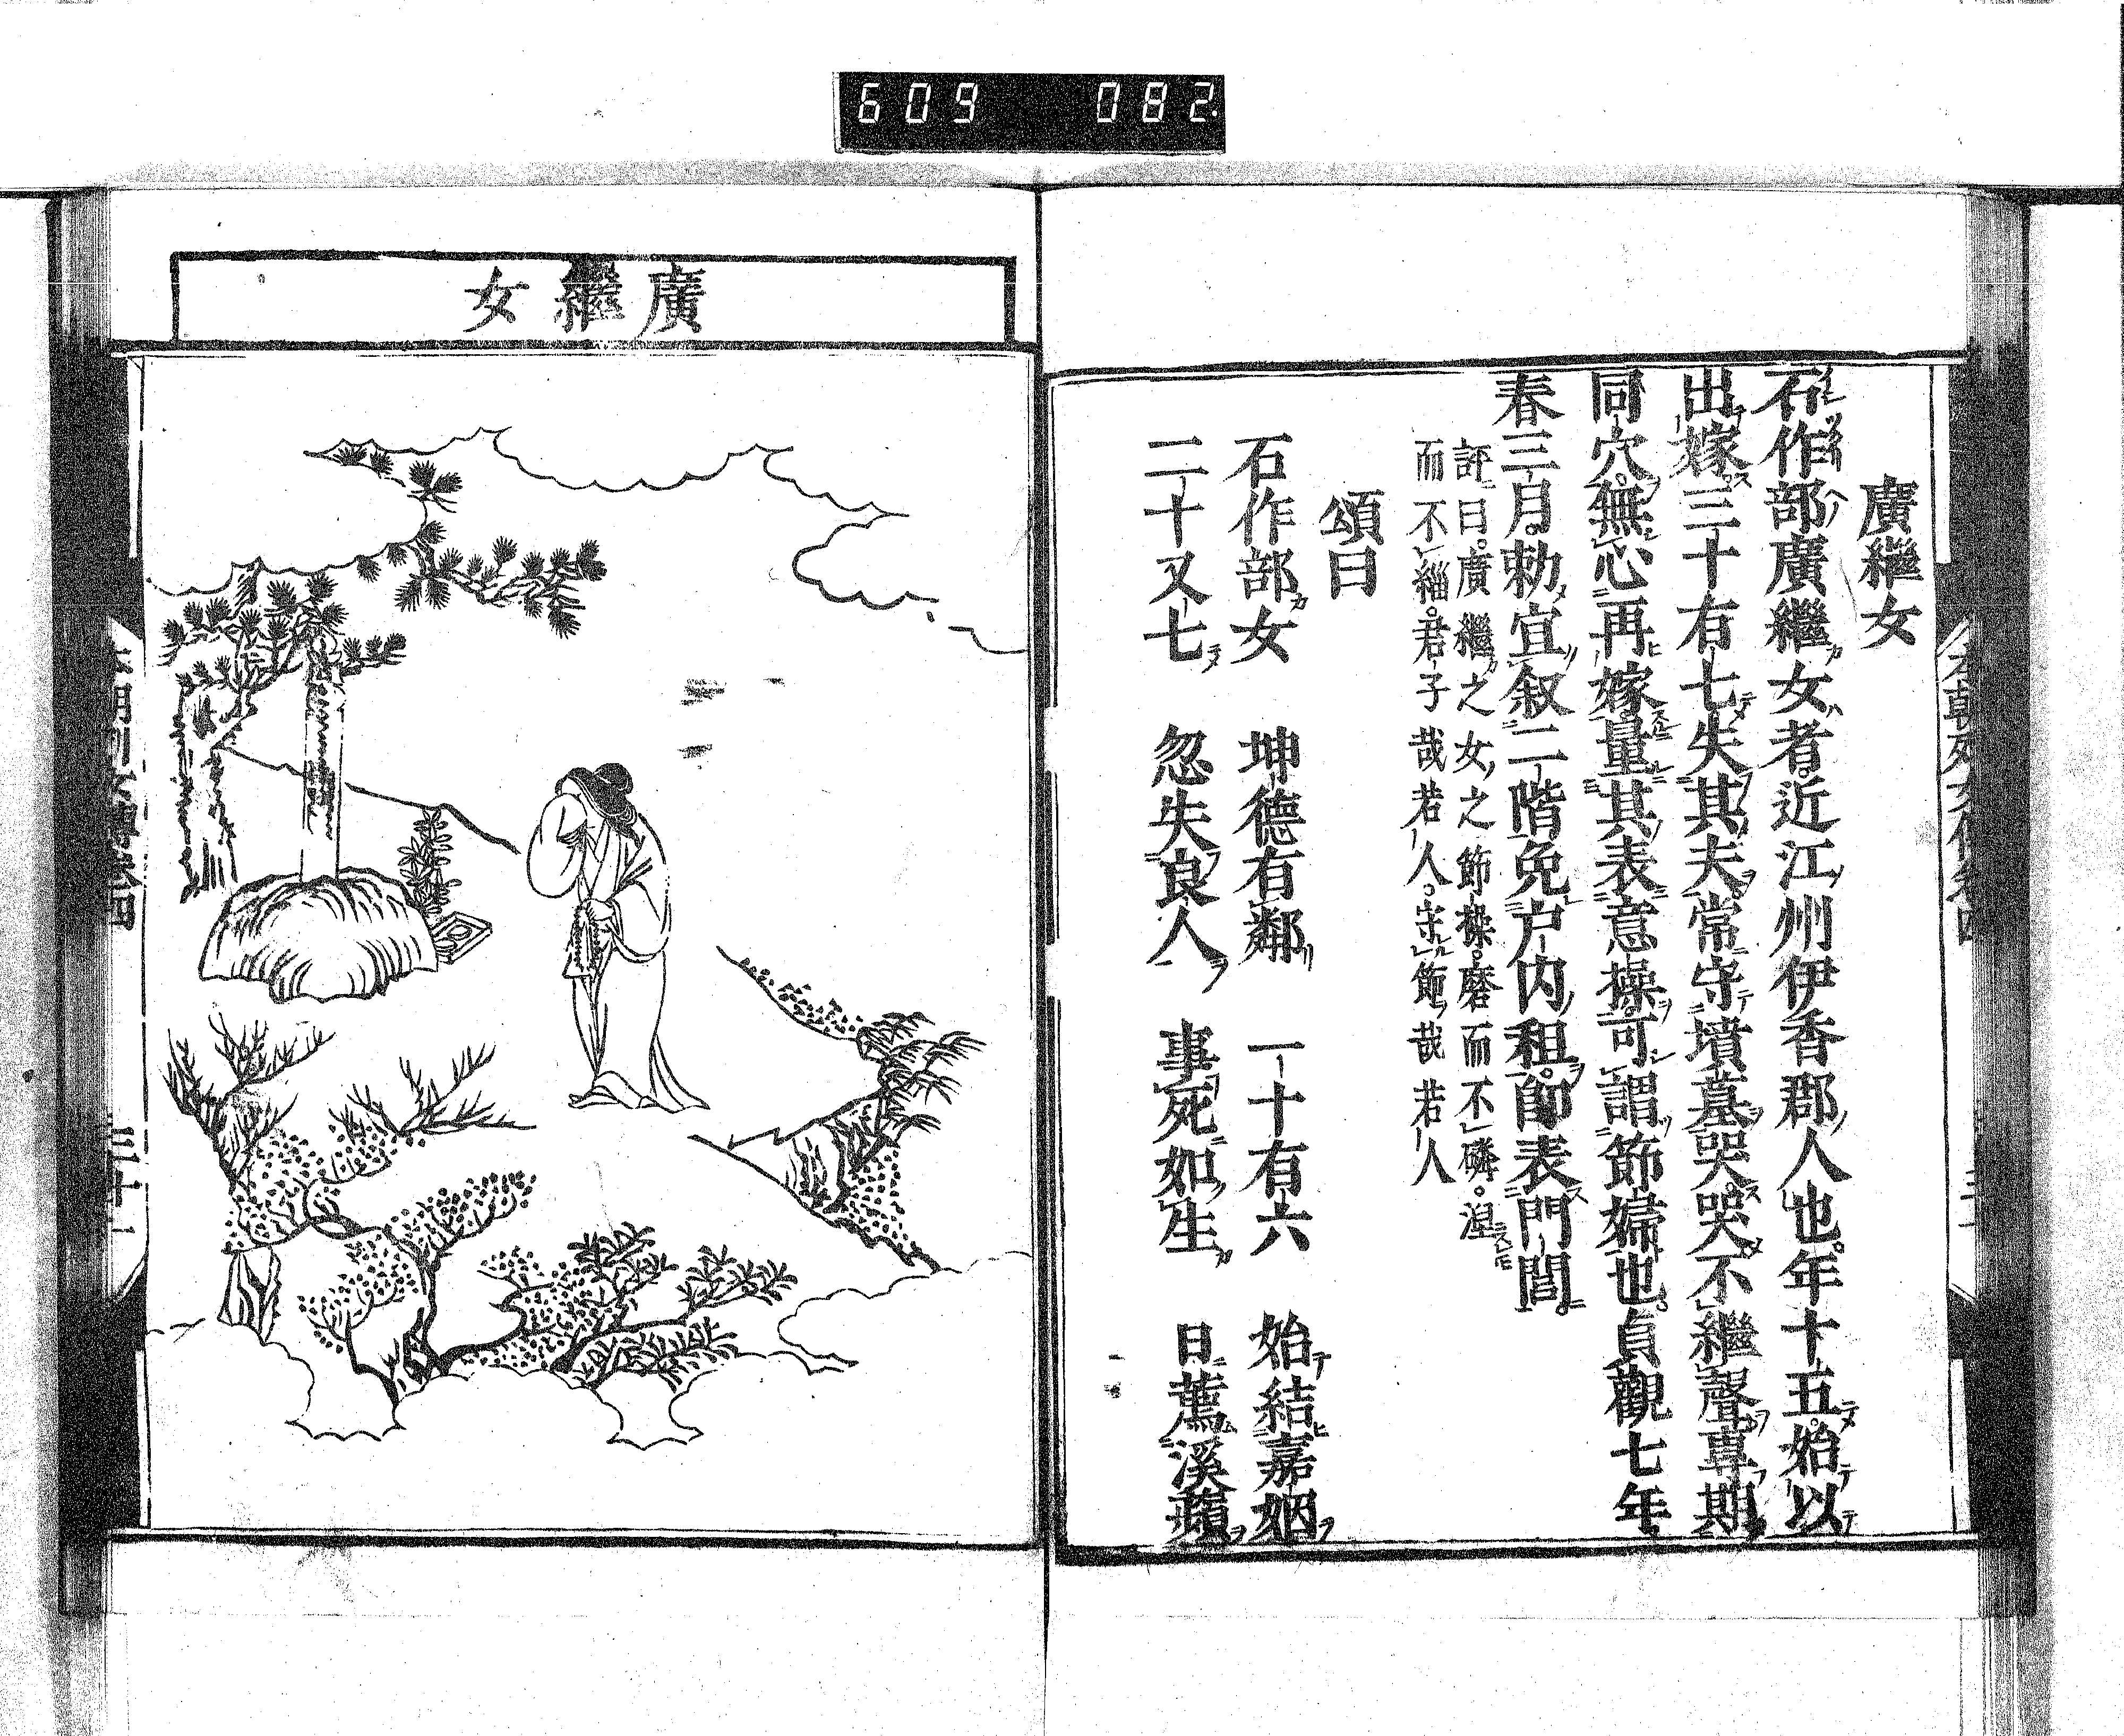 609 082
廣繼女
石作部廣繼女者近江州伊香郡人也年十五始以
出嫁三十有七失其夫常守墳墓哭哭不繼聲專期
同穴無心再嫁量其表意操可謂節婦也貞觀七年
春三月勅宜叙二階免户内租即表門閭
評曰廣繼之女之節操磨而不磷湼
而不緇君子哉若人守節哉若人
頌曰
石作部女 坤德有鄰 一十有六 始結嘉姻
二十又七 忽失良人 事死如生 日薦溪蘋
廣繼女